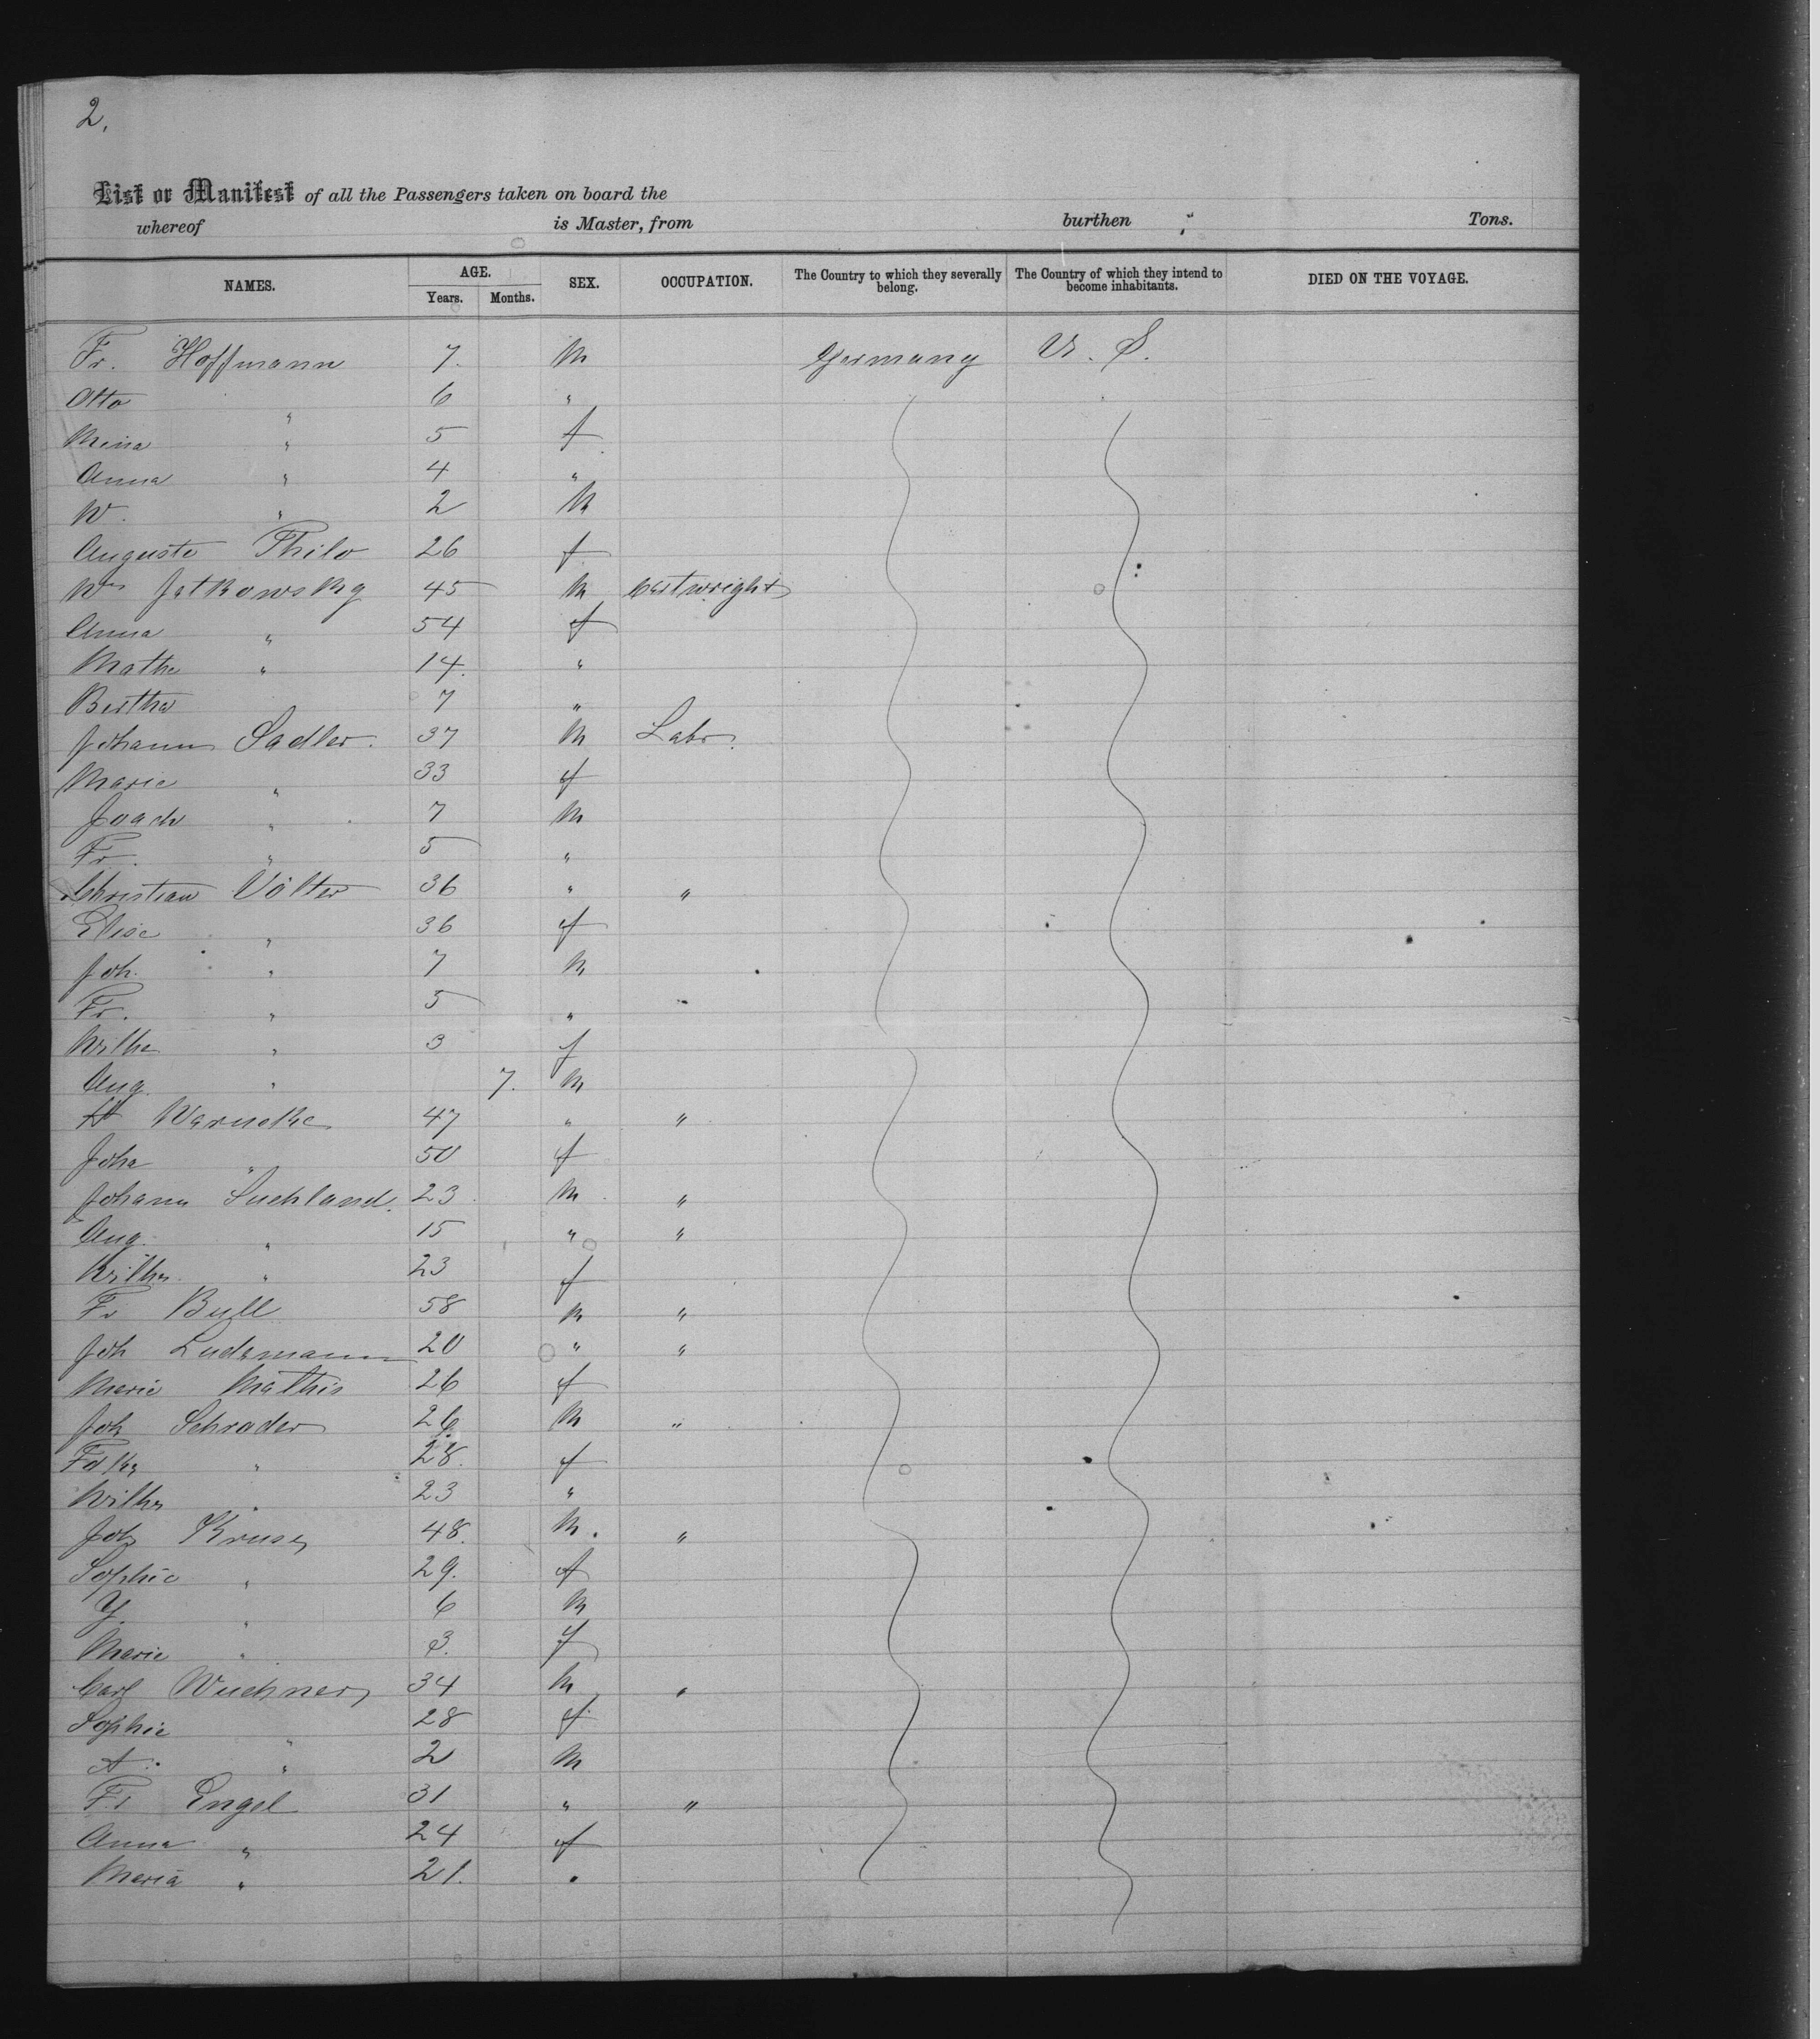 2.
List or Manifest of all the Passengers taken on board the
whereof is Master, from burthen Tons.
NAMES. AGE. Years. Months. SEX. OCCUPATION. The Country to which they severally belong. The Country of which they intend to become inhabitants. DIED ON THE VOYAGE.
Fr. Hoffmann 7. M Germany U. S.
Otto " 6 "
Mina " 5 f
Anna " 4 "
W. " 2 M
Auguste Thilo 26 f
Wm Jatkowsky 45 M Cartwright
Anna " 54 f
Mathe " 14. "
Bertha 7 "
Johann Sadler. 37 M Labr.
Marie " 33 f
Joach " 7 M
Fr. " 5 "
Christian Völter 36 " "
Elise " 36 f
Joh. " 7 M
Fr. " 5 "
Wilhe " 3 f
Aug. " 7. M
Warneke 47 " "
Joha " 50 f
Johann Suchland. 23 M "
Aug. " 15 " "
Wilhe " 23 f
Fr Bull 58 M "
Joh Ludemann 20 " "
Marie Mathis 26 f
Joh Schrader 26 M "
Fdke " 28. f
Wilhe " 23 "
Joh Kruse 48. M. "
Sophie " 29. f
" 6 M
Marie " 3. f
Carl Wuchner 34 M "
Sophie " 28 f
A. " 2 M
Fr Engel 31 " "
Anna " 24 f
Maria " 21. "